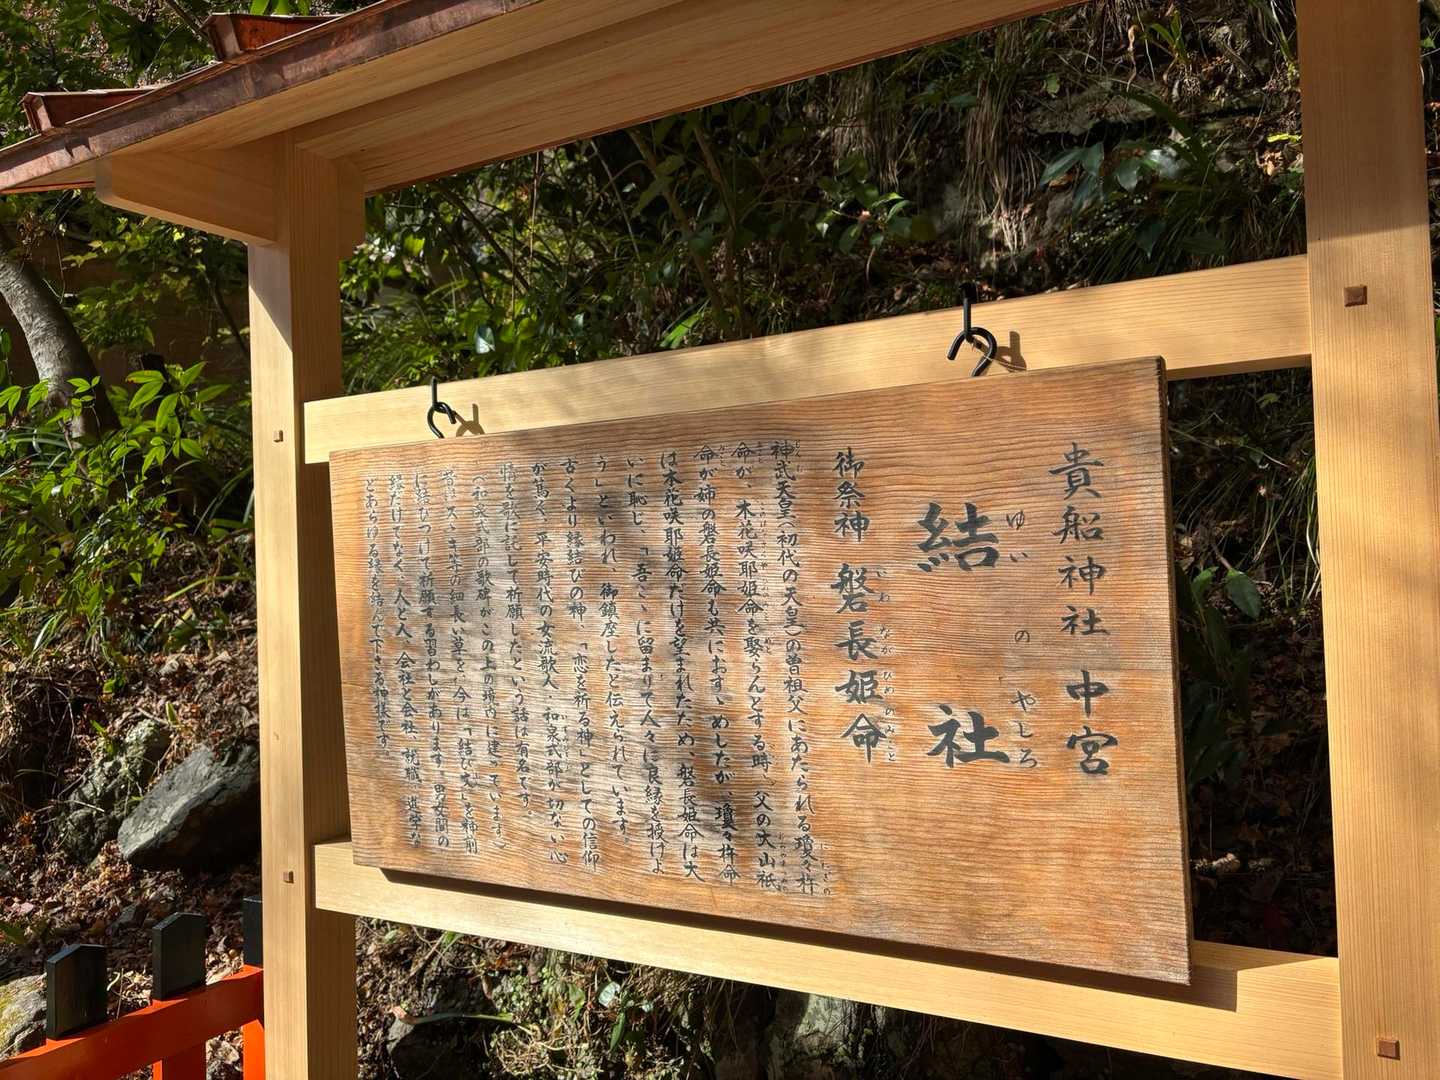 貴船神社 中宮
結社
ゆいのやしろ
御祭神 磐長姫命
いわながひめのみこと
神武天皇(初代の天皇)の曽祖父にあたられる瓊々杵
命が、木花咲耶姫命を娶らんとする時、父の大山祇
命が姉の磐長姫命も共におすゝめしたが、瓊々杵命
は木花咲耶姫命だけを望まれたため、磐長姫命は大
いに恥じ、「吾こゝに留まりて人々に良縁を授けよ
う」といわれ、御鎮座したと伝えられています。
古くより縁結びの神、「恋を祈る神」としての信仰
が篤く、平安時代の女流歌人、和泉式部が切ない心
情を歌に託して祈願したという話は有名です。
(和泉式部の歌碑がこの上の境内に建っています)
昔はススキ等の細長い草を、今は「結び文」を神前
に結びつけて祈願する習わしがあります。男女間の
縁だけでなく、人と人、会社と会社、就職、進学な
どあらゆる縁を結んで下さる神様です。